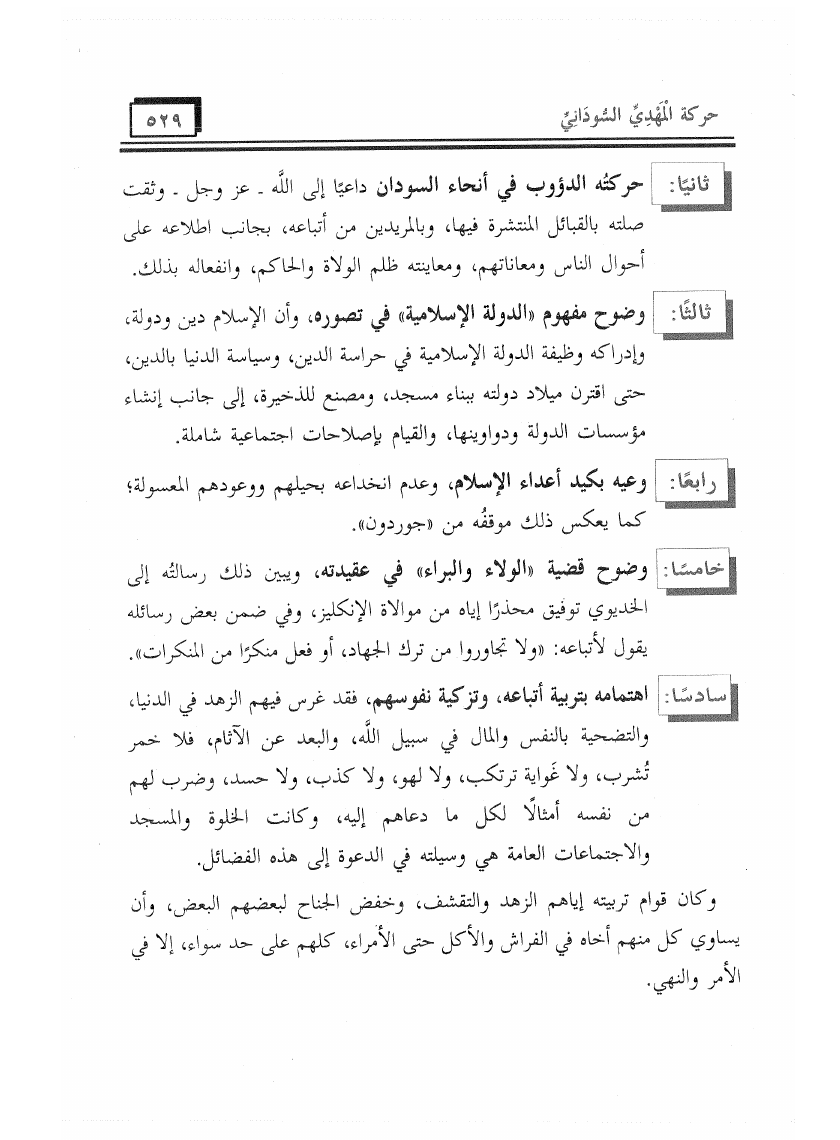 حركة الْمَهْدِيِّ السُّودَانِيِّ
٥٢٩
ثانيًا: حركتُه الدؤوب في أنحاء السودان داعيًا إلى اللَّه ـ عز وجل ـ وثقت
صلته بالقبائل المنتشرة فيها، وبالمريدين من أتباعه، بجانب اطلاعه على
أحوال الناس ومعاناتهم، ومعاينته ظلم الولاة والحاكم، وانفعاله بذلك.
ثالثًا: وضوح مفهوم «الدولة الإسلامية» في تصوره، وأن الإسلام دين ودولة،
وإدراكه وظيفة الدولة الإسلامية في حراسة الدين، وسياسة الدنيا بالدين،
حتى اقترن ميلاد دولته ببناء مسجد، ومصنع للذخيرة، إلى جانب إنشاء
مؤسسات الدولة ودواوينها، والقيام بإصلاحات اجتماعية شاملة.
رابعًا: وعيه بكيد أعداء الإسلام، وعدم انخداعه بحيلهم ووعودهم المعسولة؛
كما يعكس ذلك موقفُه من «جوردون».
خامسًا: وضوح قضية «الولاء والبراء» في عقيدته، ويبين ذلك رسالتُه إلى
الخديوي توفيق محذرًا إياه من موالاة الإنكليز، وفي ضمن بعض رسائله
يقول لأتباعه: «ولا تجاوروا من ترك الجهاد، أو فعل منكرًا من المنكرات».
سادسًا: اهتمامه بتربية أتباعه، وتزكية نفوسهم، فقد غرس فيهم الزهد في الدنيا،
والتضحية بالنفس والمال في سبيل اللَّه، والبعد عن الآثام، فلا خمر
تُشرب، ولا غَواية ترتكب، ولا لهو، ولا كذب، ولا حسد، وضرب لهم
من نفسه أمثالًا لكل ما دعاهم إليه، وكانت الخلوة والمسجد
والاجتماعات العامة هي وسيلته في الدعوة إلى هذه الفضائل.
وكان قوام تربيته إياهم الزهد والتقشف، وخفض الجناح لبعضهم البعض، وأن
يساوي كل منهم أخاه في الفراش والأكل حتى الأمراء، كلهم على حد سواء، إلا في
الأمر والنهي.